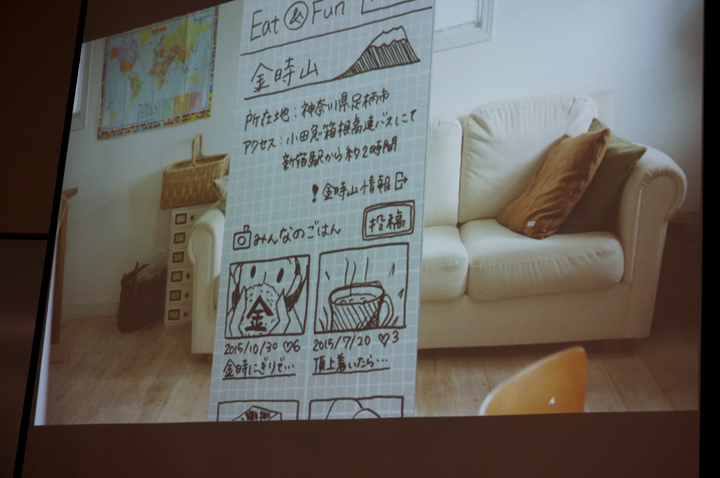 Eat & Fun
金時山
所在地：神奈川県足柄市
アクセス：小田急箱根高速バスにて
新宿駅から約2時間
！金時山情報
みんなのごはん
投稿
金
2015/10/30 ♡6
2015/7/20 ♡3
金時にぎりで…
頂上着いたら…